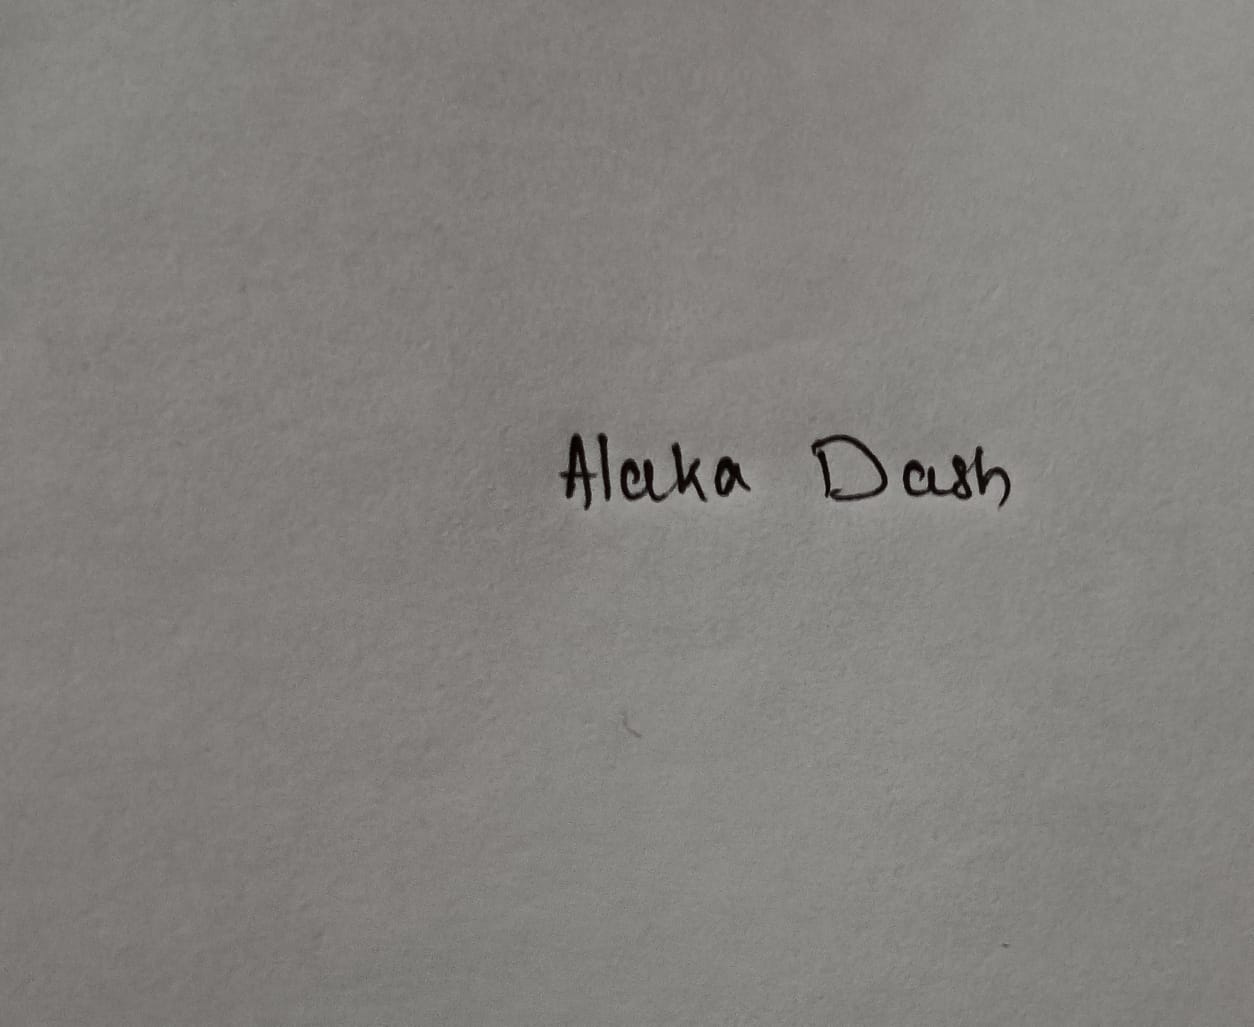 Alaka Dash